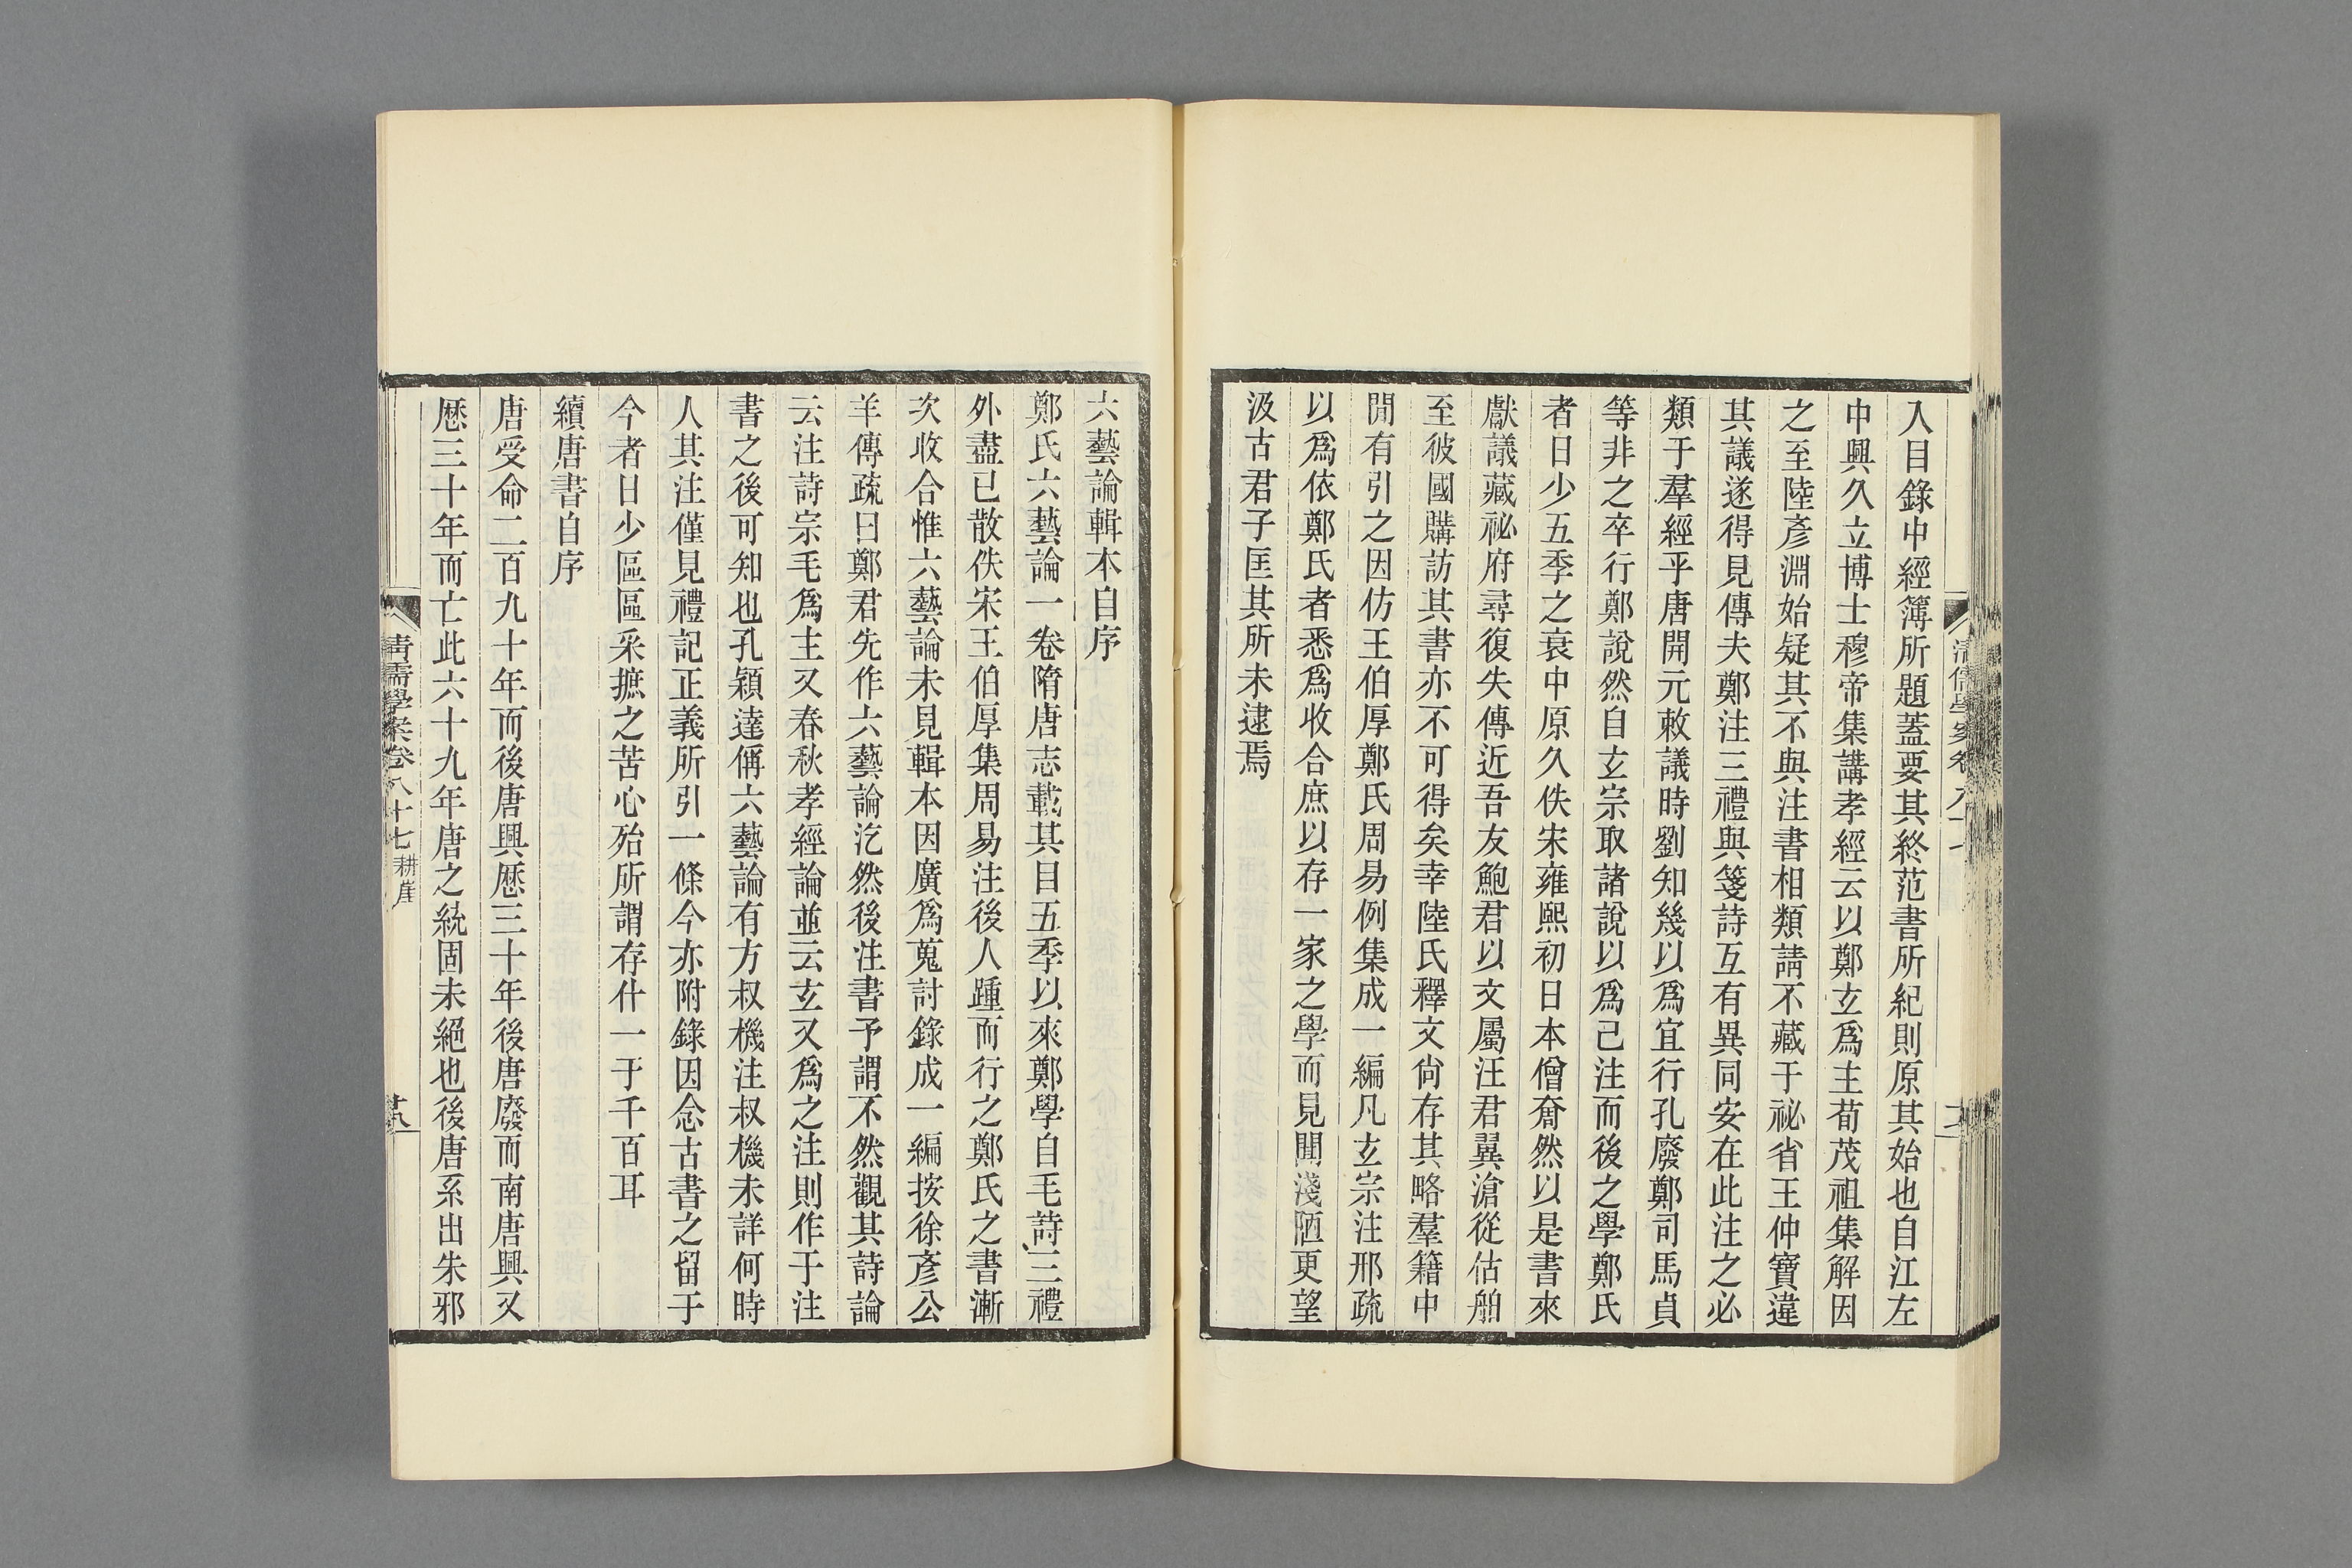 入目錄中經簿所題蓋要其終范書所紀則原其始也自江左
中興久立博士穆帝集講孝經云以鄭玄爲主荀茂祖集解因
之至陸彥淵始疑其不與注書相類請不藏于祕省王仲寶違
其議遂得見傳夫鄭注三禮與箋詩互有異同安在此注之必
類于羣經乎唐開元敕議時劉知幾以爲宜行孔廢鄭司馬貞
等非之卒行鄭說然自玄宗取諸說以爲己注而後之學鄭氏
者日少五季之衰中原久佚宋雍熙初日本僧奝然以是書來
獻議藏祕府尋復失傳近吾友鮑君以文屬汪君翼滄從估舶
至彼國購訪其書亦不可得矣幸陸氏釋文尙存其略羣籍中
閒有引之因仿王伯厚鄭氏周易例集成一編凡玄宗注邢疏
以爲依鄭氏者悉爲收合庶以存一家之學而見聞淺陋更望
汲古君子匡其所未逮焉
六藝論輯本自序
鄭氏六藝論一卷隋唐志載其目五季以來鄭學自毛詩三禮
外盡已散佚宋王伯厚集周易注後人踵而行之鄭氏之書漸
次收合惟六藝論未見輯本因廣爲蒐討錄成一編按徐彥公
羊傳疏曰鄭君先作六藝論訖然後注書予謂不然觀其詩論
云注詩宗毛爲主又春秋孝經論並云玄又爲之注則作于注
書之後可知也孔穎達偁六藝論有方叔機注叔機未詳何時
人其注僅見禮記正義所引一條今亦附錄因念古書之留于
今者日少區區采摭之苦心殆所謂存什一于千百耳
續唐書自序
唐受命二百九十年而後唐興歷三十年後唐廢而南唐興又
歷三十年而亡此六十九年唐之統固未絕也後唐系出朱邪
清儒學案卷八十七 耕崖